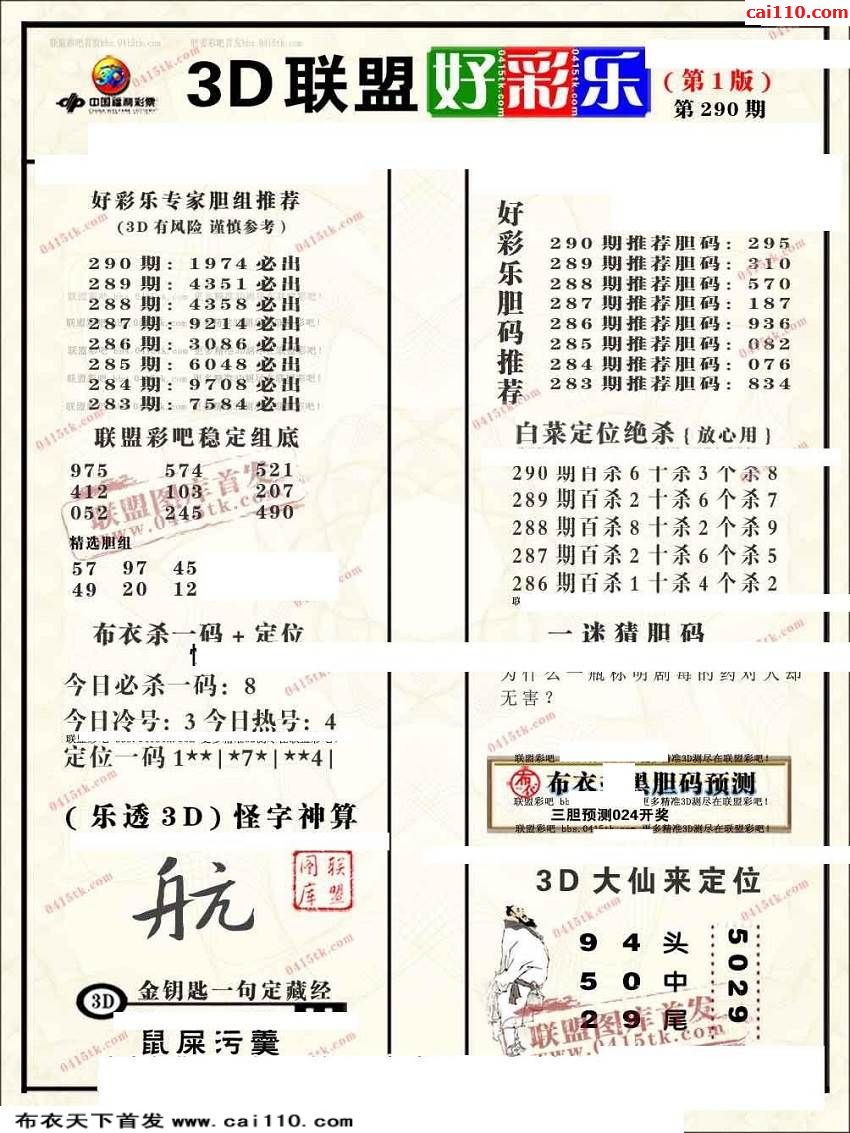 cai110.com
联盟彩吧首发bbs.0415tk.com
中国福利彩票
CHINA WELFARE LOTTERY
3D联盟好彩乐
0415tk.com
(第1版)
第290期
好彩乐专家胆组推荐
(3D有风险 谨慎参考)
290期: 1974必出
289期: 4351必出
288期: 4358必出
287期: 9214必出
286期: 3086必出
285期: 6048必出
284期: 9708必出
283期: 7584必出
联盟彩吧稳定组底
975 574 521
412 103 207
052 245 490
联盟图库首发
www.0415tk.com
精选胆组
57 97 45
49 20 12
布衣杀一码+定位
今日必杀一码: 8
今日冷号: 3 今日热号: 4
定位一码1**|*7*|**4|
(乐透3D)怪字神算
航
联盟图库
3D
金钥匙一句定藏经
鼠屎污羹
好彩乐胆码推荐
290期推荐胆码: 295
289期推荐胆码: 310
288期推荐胆码: 570
287期推荐胆码: 187
286期推荐胆码: 936
285期推荐胆码: 082
284期推荐胆码: 076
283期推荐胆码: 834
白菜定位绝杀{放心用}
290期百杀6十杀3个杀8
289期百杀2十杀6个杀7
288期百杀8十杀2个杀9
287期百杀2十杀6个杀5
286期百杀1十杀4个杀2
一迷猜胆码
为什么一瓶标明剧毒的药对人却
无害?
联盟彩吧 更多精准3D测尽在联盟彩吧!
布衣 黑胆码预测
联盟彩吧 更多精准3D测尽在联盟彩吧!
三胆预测024开奖
联盟彩吧 bbs.0415tk.com 更多精准3D测尽在联盟彩吧!
3D大仙来定位
9 4 头
5 0 中
2 9 尾
5029
联盟图库首发
www.0415tk.com
布衣天下首发 www.cai110.com